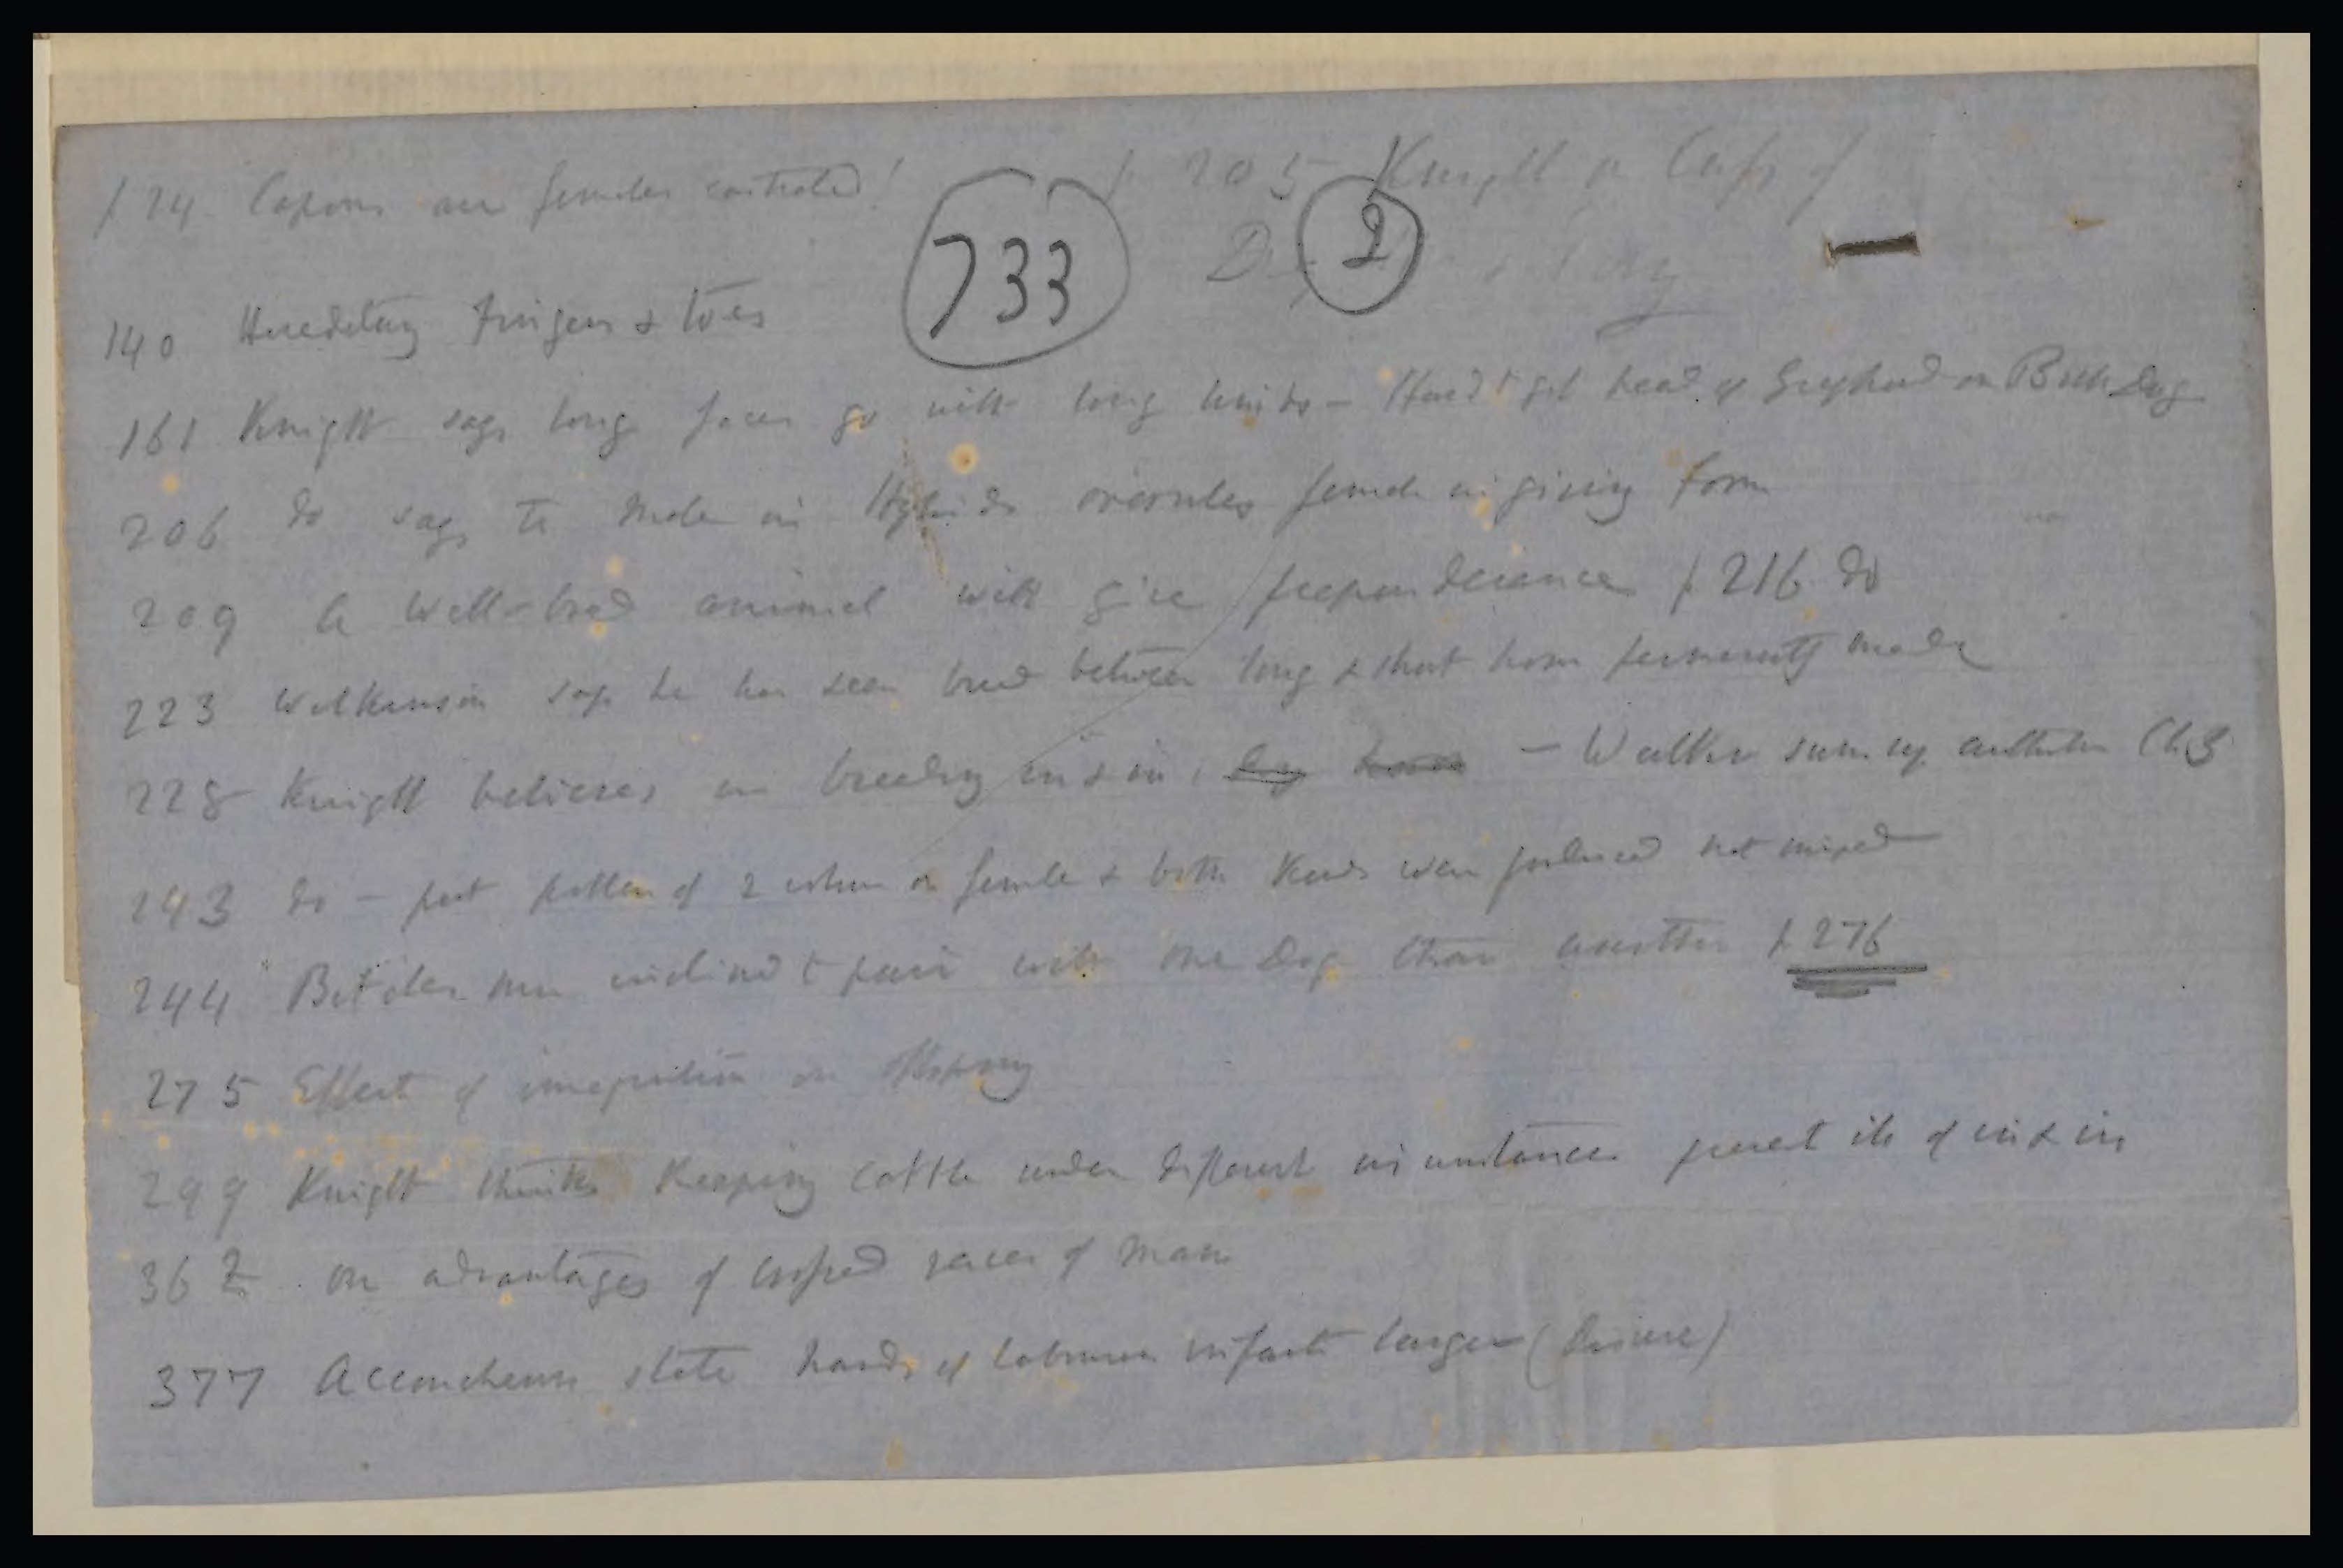 p 24. Capons are females castrated!
p. 205 Knight on Cap of
733
2
140 Hereditary fingers & toes
161 Knight says long faces go with long limbs – Hard t get head of Greyhound on Bull Dog
206 do says te male in Hybrids overrules female in giving form
209 A well-bred animal will give preponderance p 216 do
223 Wilkinson says he has seen breed between long & short horn permanently made
228 Knight believes in breeding in & in, – Walker sums up authorities Ch 3
243 do – put pollen of 2 on female & both kinds were produced not mixed
244 Bitches more inclined t pair with one Dog than another p 276
275 Effect of imagination on offspring
299 Knight thinks keeping cattle under different circumstances prevent ills of in & in
362 on advantages of crossed races of man
377 Accoucheurs state hands of labourers infants larger (Disuse)